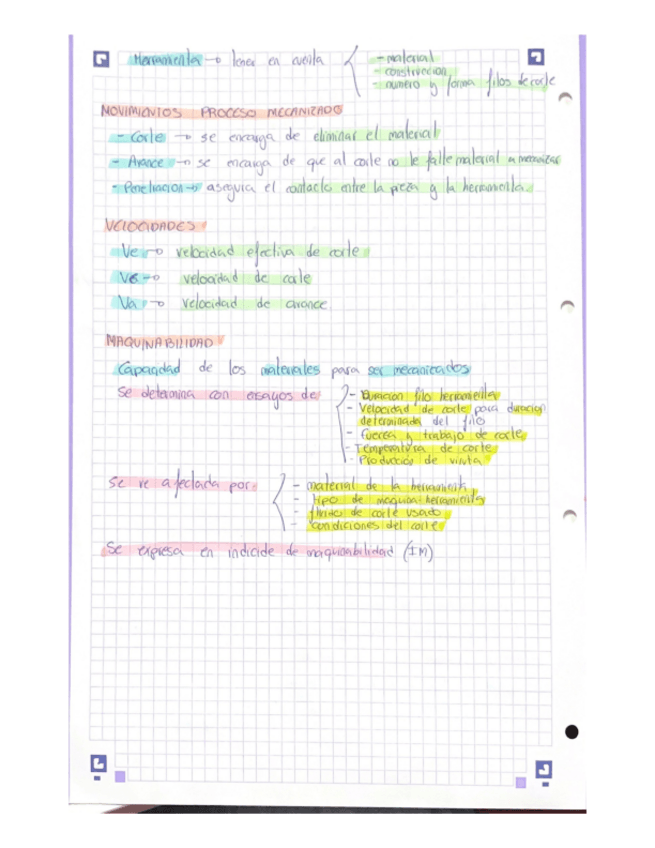 Herramientas → tener en cuenta
- material
- construcion
- numero y forma filos de corte
MOVIMIENTOS PROCESO MECANIZADO
- Corte → se encarga de eliminar el material
- Avance → se encarga de que al corte no le falte material a mecanizar
- Penetracion → asegura el contacto entre la pieza y la herramienta.
VELOCIDADES
Ve → velocidad efectiva de corte
Vc → velocidad de corte
Va → velocidad de avance
MAQUINABILIDAD
Capacidad de los materiales para ser mecanizados
Se determina con ensayos de
- Duracion filo herramienta
- Velocidad de corte para duracion
determinada del filo
- Fuerza y trabajo de corte
- Temperatura de corte
- Producción de viruta
Se ve afectada por:
- material de la herramienta
- tipo de maquina-herramienta
- fluido de corte usado
- condiciones del corte
Se expresa en indicide de maquinabilidad (IM)